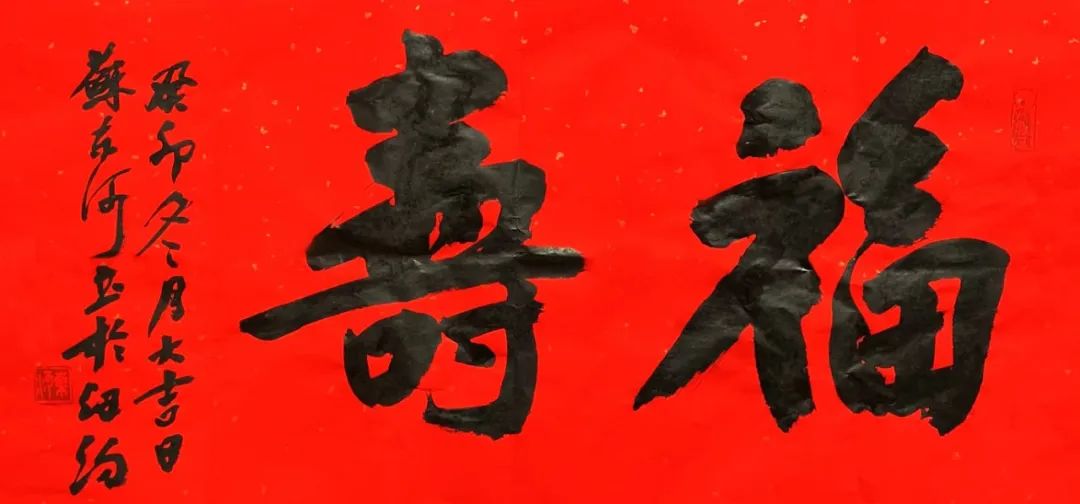 福壽
癸卯冬月大吉日
蘇士河書於紐約